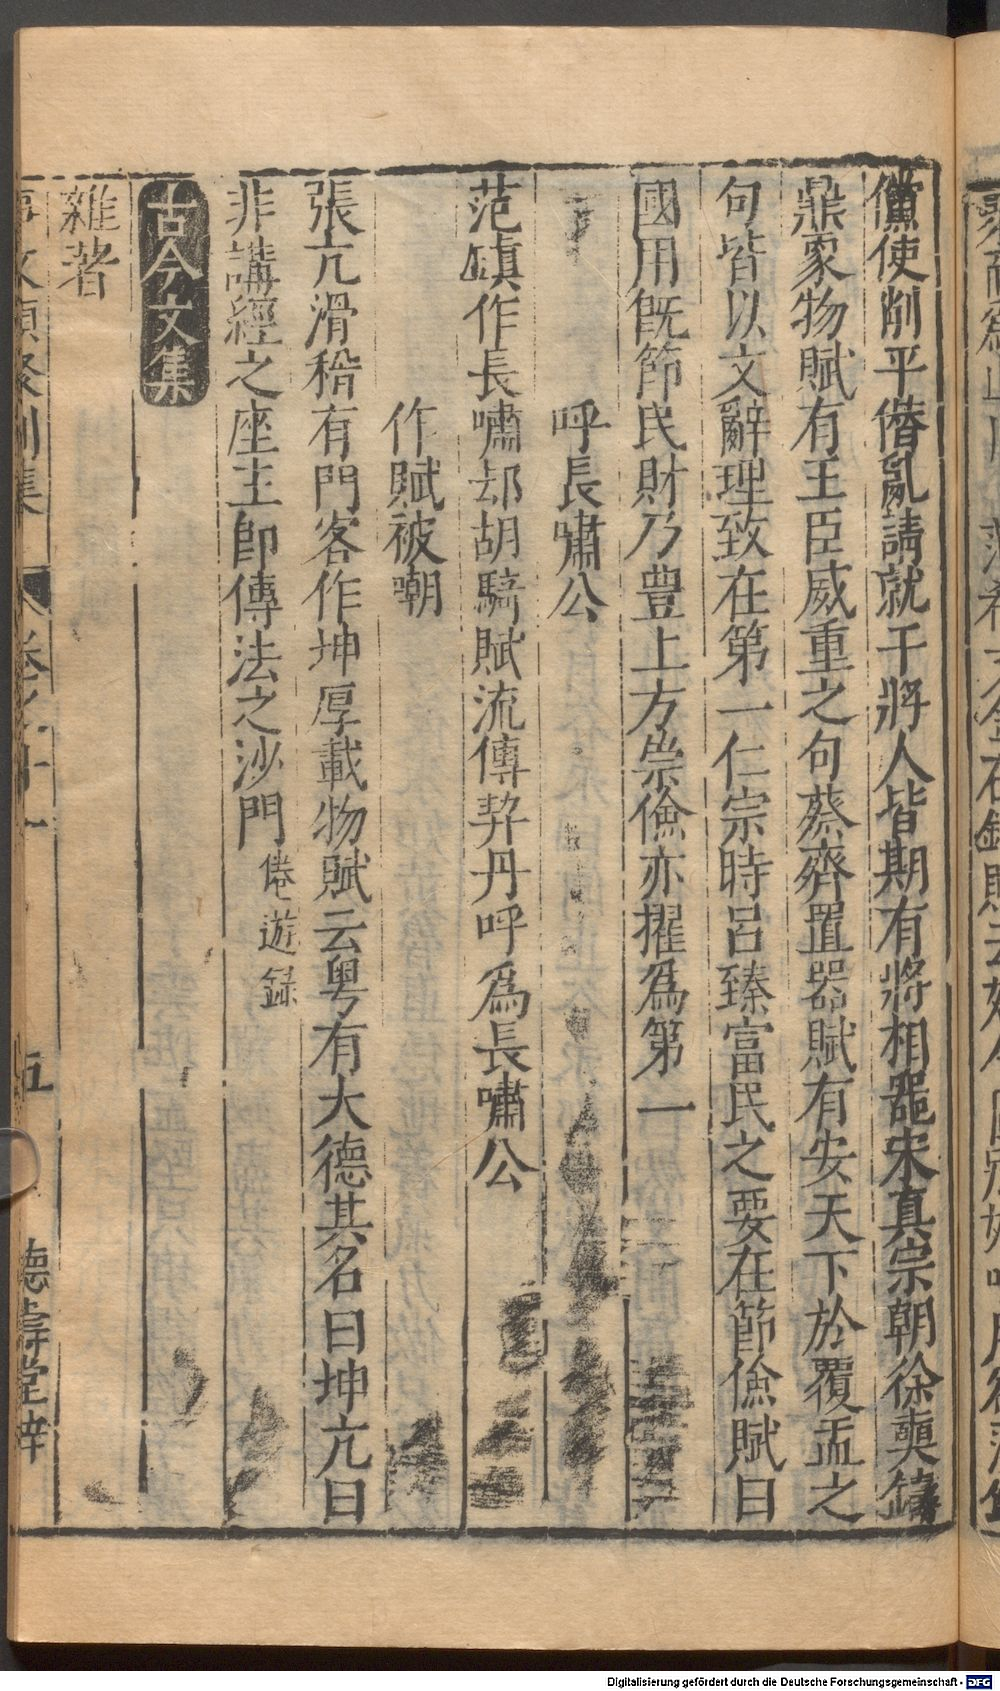 儻使削平僭亂請就干將人皆期有將相噐宋真宗朝徐奭鑄
鼎象物賦有王臣威重之句蔡齊置器賦有安天下於覆盂之
句皆以文辭理致在第一仁宗時呂臻富民之要在節儉賦曰
國用既節民財乃豊上方崇儉亦擢爲第一
呼長嘯公
范鎮作長嘯却胡騎賦流傳契丹呼爲長嘯公
作賦被嘲
張亢滑稽有門客作坤厚載物賦云粵有大德其名曰坤亢曰
非講經之座主即傳法之沙門 倦遊録
古今文集
雜著
事文類聚別集 卷之十一 五 德壽堂梓
Digitalisierung gefördert durch die Deutsche Forschungsgemeinschaft - DFG